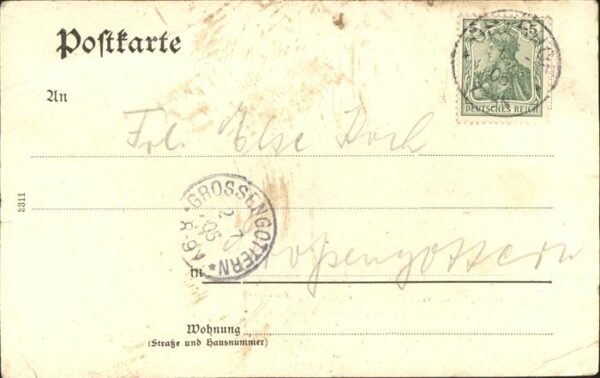 Postkarte
5
DEUTSCHES REICH
05
An
Frl. Else Koch
GROSSENGOTTERN
2 7
05
8-9V
in Großengottern
2311
Wohnung
(Straße und Hausnummer)